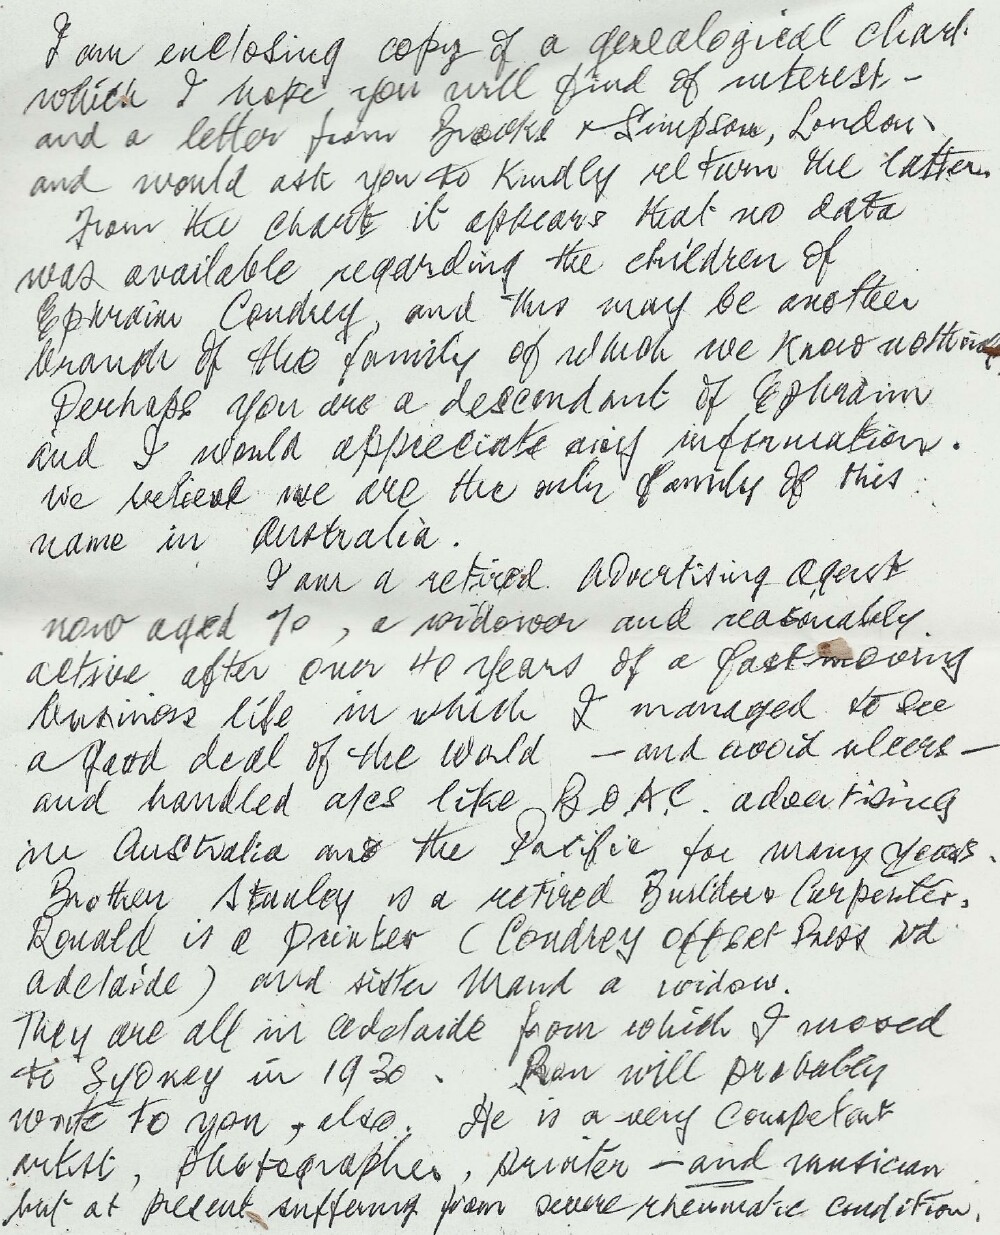 I am enclosing copy of a genealogical chart
which I hope you will find of interest -
and a letter from Brooks & Simpson, London,
and would ask you to kindly return the latter.
From the chart it appears that no data
was available regarding the children of
Ephraim Condrey, and this may be another
branch of the family of which we know nothing.
Perhaps you are a descendant of Ephraim
and I would appreciate any information.
We believe we are the only family of this
name in Australia.
I am a retired advertising agent
now aged 70, a widower and reasonably
active after over 40 years of a fast moving
business life in which I managed to see
a good deal of the world - and avoid ulcers -
and handled a/cs like B.O.A.C. advertising
in Australia and the Pacific for many years.
Brother Stanley is a retired Builder & Carpenter.
Ronald is a printer (Condrey Offset Press
Adelaide) and sister Maud a widow.
They are all in Adelaide from which I moved
to Sydney in 1930. Ron will probably
write to you, also. He is a very competent
artist, photographer, printer - and musician
but at present suffering from severe rheumatic condition.